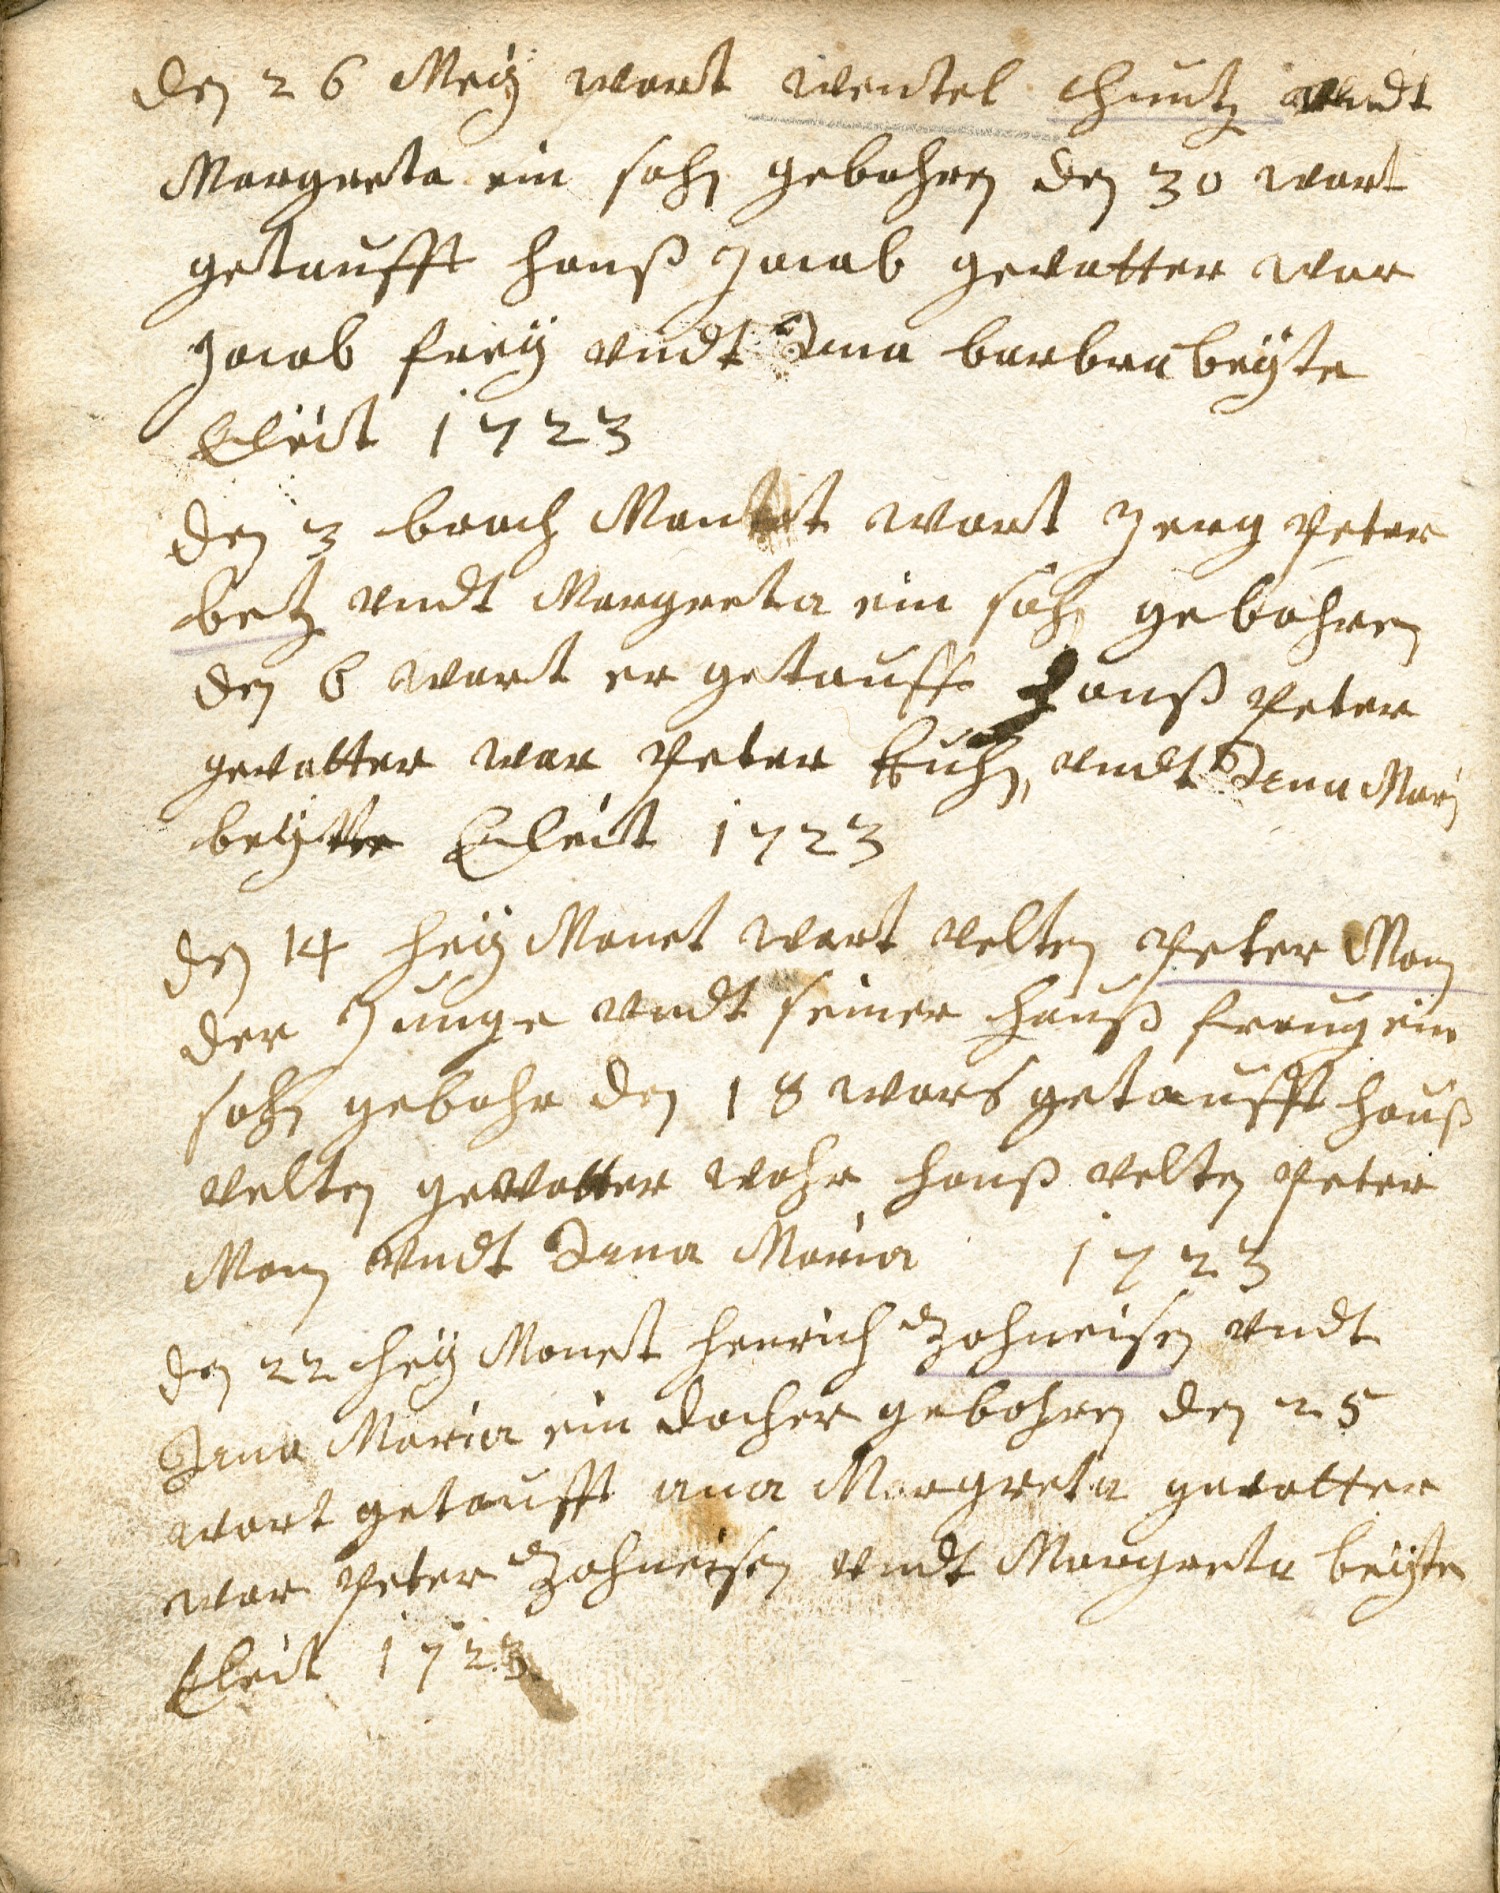 den 26 Meÿ wart wentel Chuntz vndt
Margreta ein sohn gebohren den 30 wart
getaufft hanß Jacob gevatter war
Jacob freÿ vndt Ana barbra beÿte
Eleit 1723
den 3 brach Monet wart Jerg Peter
betz vndt Margreta ein sohn gebohren
den 6 wart er getaufft hanß Peter
gevatter war Peter vndt Anna Mari
beÿte Eleit 1723
den 14 heÿ Monet wart velten Peter Man
der Junge vndt seiner hauß fraug ein
sohn gebohr den 18 wars getaufft hanß
velten gevatter wahr hanß velten Peter
Man vndt Anna Maria 1723
den 22 heÿ Monet henrich Zohneisen vndt
Anna Maria ein docher gebohren den 25
wart getaufft ana Margreta gevatter
war Peter Zohneisen vndt Margreta beÿte
Eleit 1723